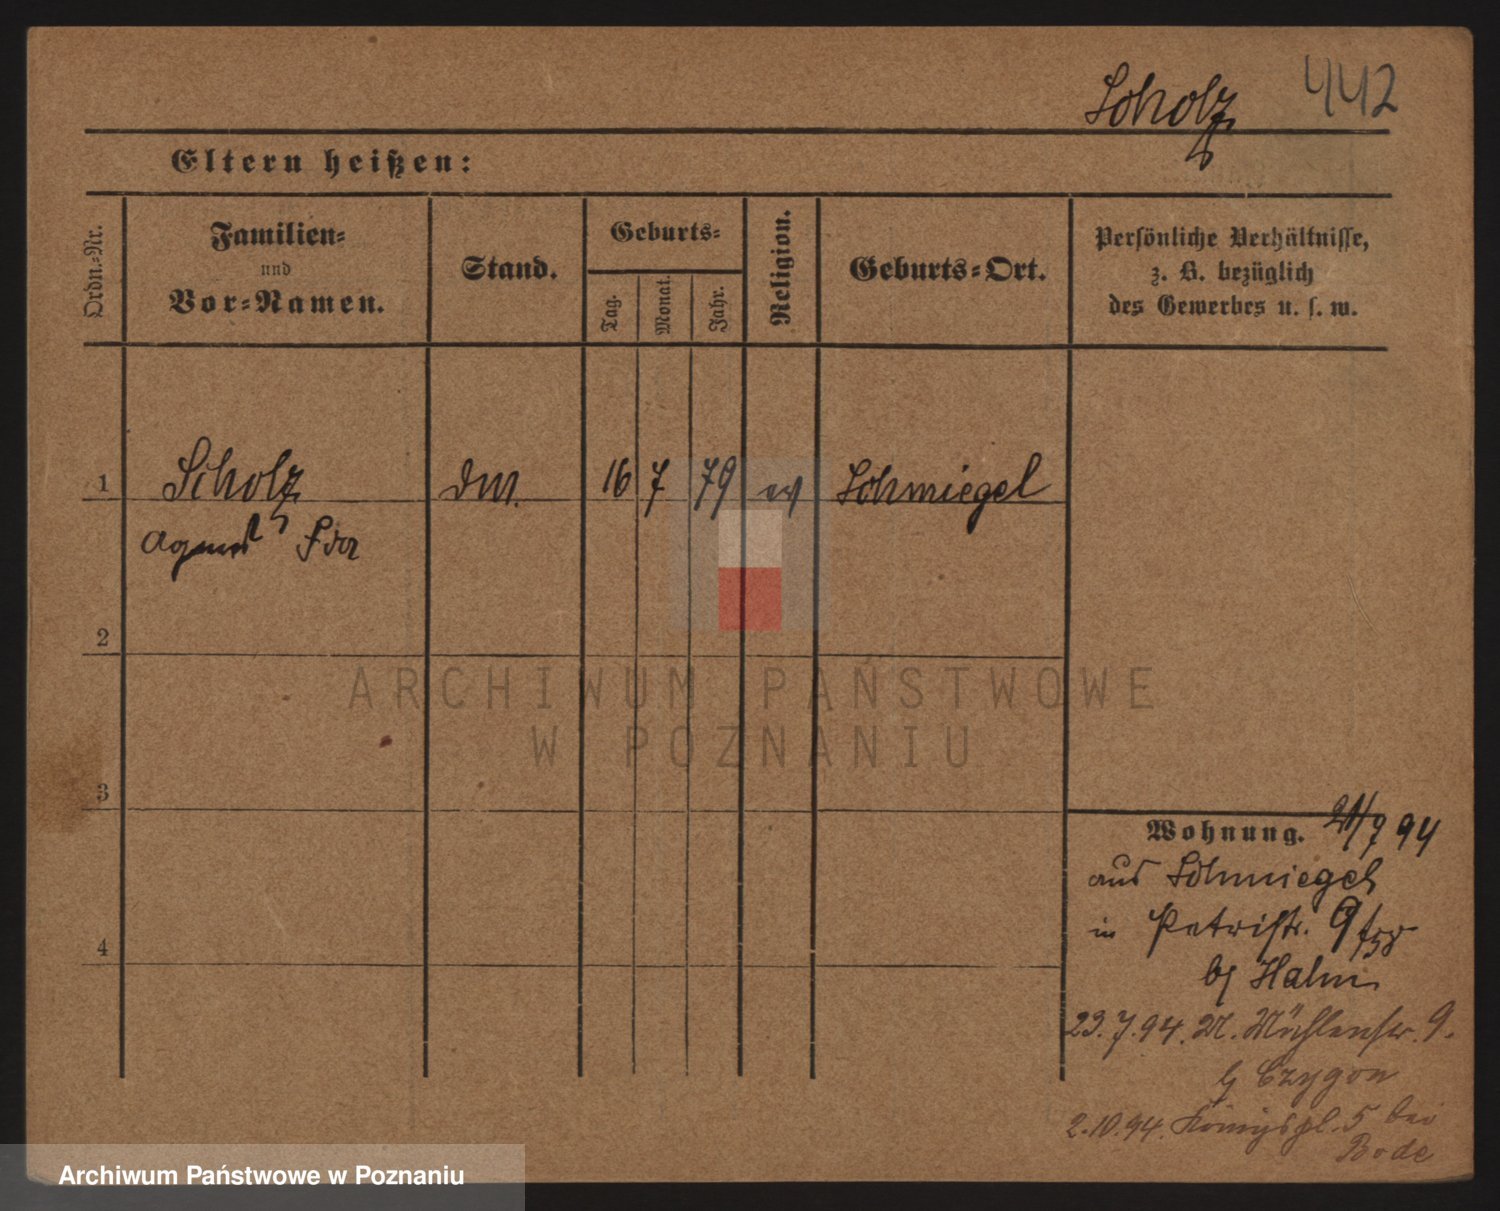 Scholz 442
Eltern heißen:
Ordn.-Nr.
Familien-
und
Vor-Namen.
Stand.
Geburts-
Tag.
Monat.
Jahr.
Religion.
Geburts-Ort.
Persönliche Verhältnisse,
z. B. bezüglich
des Gewerbes u. s. w.
1 Scholz 16 7 79 ev Schmiegel
Ida
2
ARCHIWUM PAŃSTWOWE
W POZNANIU
3
Wohnung. 21/9 94
aus Schmiegel
in Petristr. 9
b/ Hahn
23.7.94. M. Mühlenstr. 9.
b/ Czygon
2.10.94. Königspl. 5 bei
Bode
4
Archiwum Państwowe w Poznaniu